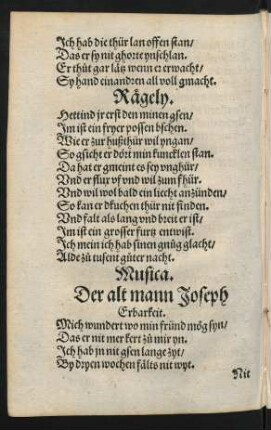 Ich hab die thür lan offen stan/
Das er sy nit ghorte ynschlan.
Er thůt gar lätz wenn er erwacht/
Sy hand einandren all voll gmacht.
Rägely.
Hettind jr erst den minen gsen/
Im ist ein fryer possen bschen.
Wie er zur hußthür wil yngan/
So gsicht er dört min kuncklen stan.
Da hat er gmeint es sey unghür/
Vnd er flux vf vnd wil zum fhür.
Vnd wil wol bald ein liecht anzünden/
So kan er dkuchen thür nit finden.
Vnd falt als lang vnd breit er ist/
Im ist ein grosser furtz entwist.
Ich mein ich hab sinen gnůg glacht/
Alde zů tusent gůter nacht.
Musica.
Der alt mann Joseph
Erbarkeit.
Mich wundert wo min fründ mög syn/
Das er nit mer kert zů mir yn.
Ich hab jn nit gsen lange zyt/
By dryen wochen fälts nit wyt.
Nit